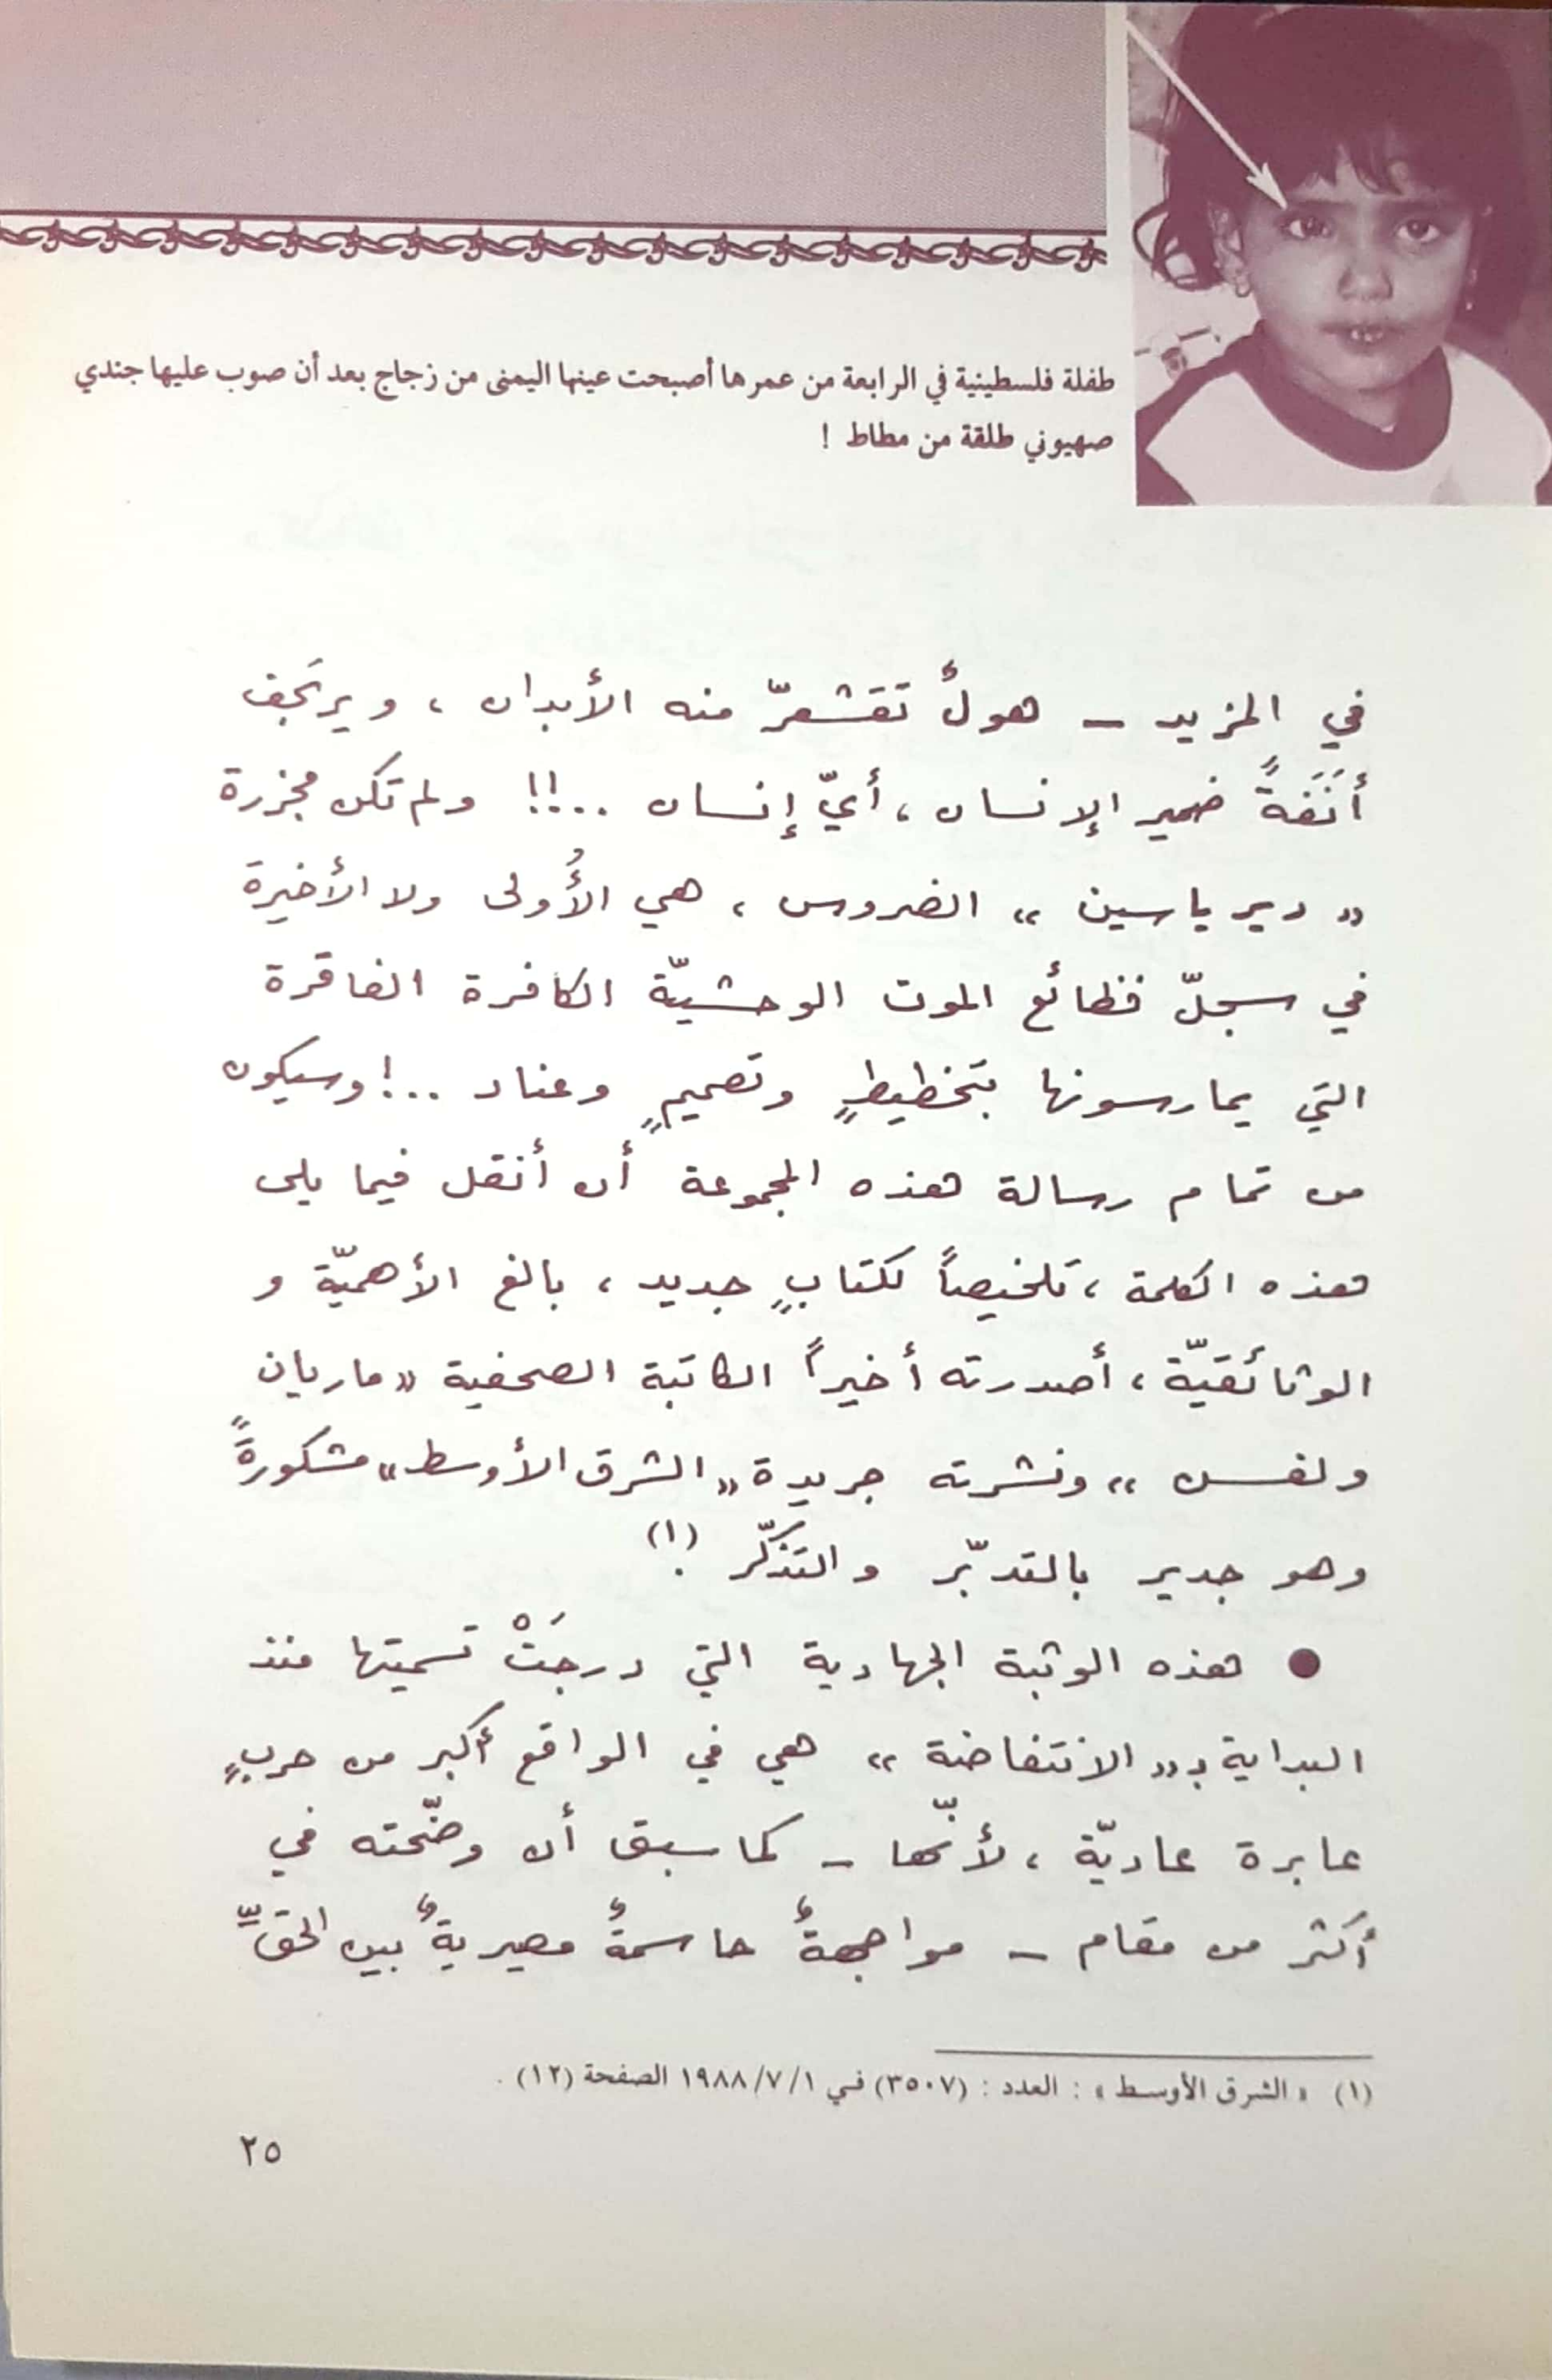 طفلة فلسطينية في الرابعة من عمرها أصبحت عينها اليمنى من زجاج بعد أن صوب عليها جندي
صهيوني طلقة من مطاط !
في المزيد – هولٌ تقشعرّ منه الأبدان ، ويرتَجف
أَنَفَةً ضمير الإنسان ، أيّ إنسان ..!! ولم تكن مجزرة
« دير ياسين » الضروس ، هي الأُولى ولا الأخيرة
في سجلّ فظائع الموت الوحشيّة الكافرة الفاقرة
التي يمارسونها بتخطيطٍ وتصميمٍ وعناد ..! وسيكون
من تمام رسالة هذه المجموعة أن أنقل فيما يلي
هذه الكلمة ، تلخيصاً لكتابٍ جديد ، بالغ الأهميّة و
الوثائقيّة ، أصدرته أخيراً الكاتبة الصحفية « ماريان
ولفسن » ونشرته جريدة « الشرق الأوسط » مشكورةً
وهو جدير بالتدبّر والتذكّر .(١)
● هذه الوثبة الجهادية التي درجَتْ تسميتها منذ
البداية بـ « الانتفاضة » هي في الواقع أكبر من حربٍ
عابرة عاديّة ، لأنّها – كما سبق أن وضّحته في
أكثر من مقام – مواجهةٌ حاسمةٌ مصيريةٌ بين الحقِّ
(١) « الشرق الأوسط » : العدد : (٣٥٠٧) في ١٩٨٨/٧/١ الصفحة (١٢) .
٢٥